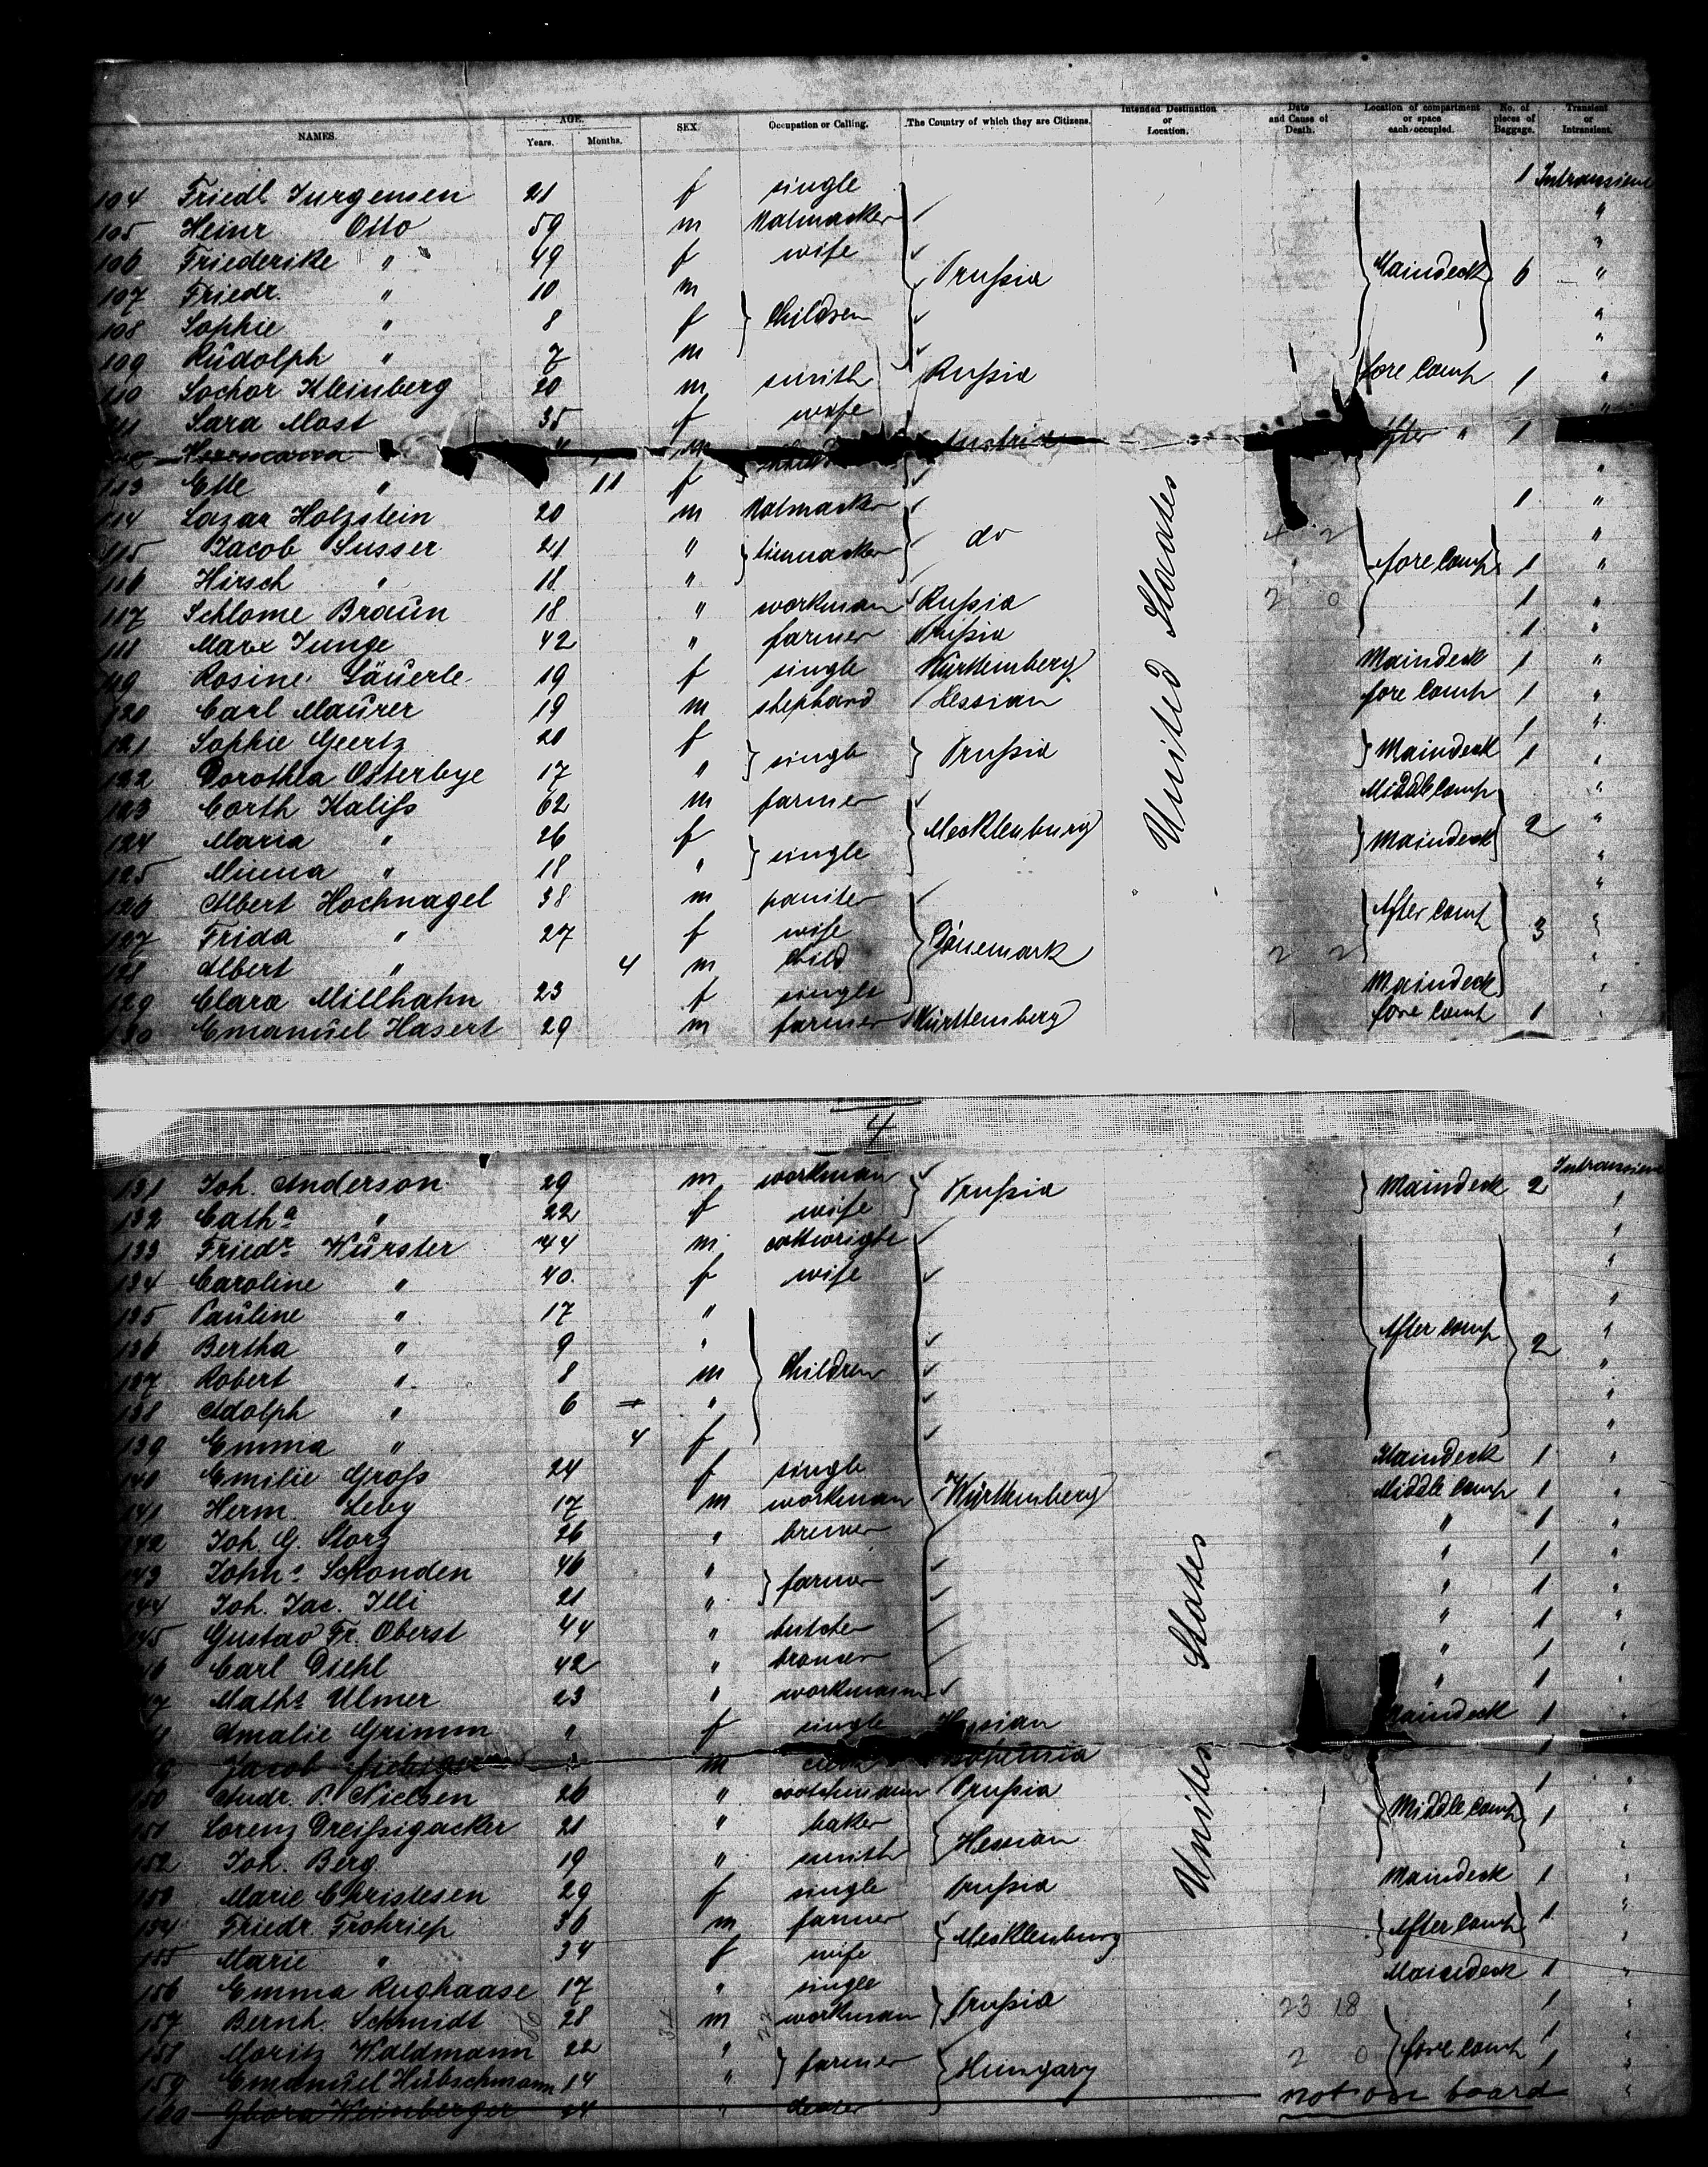 NAMES. AGE. Years. Months. SEX. Occupation or Calling. The Country of which they are Citizens. Intended Destination or Location. Date and Cause of Death. Location of compartment or space each occupied. No. of pieces of Baggage. Transient or Intransient.
104 Friedl Jurgensen 21 f single 1 Intransient
105 Heinr Otto 59 m "
106 Friederike " 49 f wife "
107 Friedr. " 10 m Prußia Maindeck 6 "
108 Sophie " 8 f Children "
109 Rudolph " 7 m "
110 Sochor Kleinberg 20 m smith Rußia fore Comp 1 "
111 Sara Most 35 f wife "
m Austria After " 1
113 Ette " 11 f "
114 Lazar Holzstein 20 m 1 "
115 Jacob Susser 21 " do 4 2 "
116 Hirsch " 18 " fore Comp 1 "
117 Schlome Braun 18 " workman Rußia 2 0 1 "
118 Marx Junge 42 " farmer Prußia 1 "
119 Rosine Säuerle 19 f single Württemberg Maindeck 1 "
120 Carl Maurer 19 m shephard Hessian fore Comp 1 "
121 Sophie Geertz 20 f 1 "
122 Dorothea Osterbye 17 " single Prußia Maindeck 1 "
123 Corth Kalifs 62 m farmer Middle Comp "
124 Maria " 26 f Mecklenburg Maindeck 2 "
125 Minna " 18 " single "
126 Albert Hochnagel 38 m "
127 Frida " 27 f wife Dänemark After Comp 3 "
128 Albert " 4 m Child 2 2 "
129 Clara Millhahn 23 f single Maindeck "
130 Emanuel Hasert 29 m farmer Württemberg fore Comp 1 "
United States
4
131 Joh. Anderson 29 m workman Prußia Maindeck 2 Intransient
132 Catha " 22 f wife "
133 Friedr Wurster 44 m "
134 Caroline " 40 f wife "
135 Pauline " 17 " "
136 Bertha " 9 " After comp 2 "
137 Robert " 8 m Children "
138 Adolph " 6 " "
139 Emma " 4 f "
140 Emilie Groß 24 f single Maindeck 1 "
141 Herm. Leby 17 m workman Württemberg Middle Comp 1 "
142 Joh. G. Storz 26 " " 1 "
143 Johns Schonden 46 " farmer " 1 "
144 Joh. Jac. Illi 21 " " 1 "
145 Gustav Fr. Oberst 44 " butcher " 1 "
146 Carl Diehl 42 " " 1 "
147 Maths Ulmer 23 " workmann " 1 "
148 Amalie Grimm " f single Hessian Maindeck 1 "
149 Jacob m Bohemia 1
150 Andr. P. Nielsen 26 " Prußia 1 "
151 Lorenz Dreißigacker 21 " baker Hessian Middle Comp 1 "
152 Joh. Berg 19 " smith "
153 Marie Christesen 29 f single Prußia Maindeck 1 "
154 Friedr. Frohriep 36 m farmer Mecklenburg After Comp 1 "
155 Marie " 34 f wife "
156 Emma Rughaase 17 " single Maindeck 1 "
157 Bernh. Schmidt 28 m workman Prußia 23 18 1 "
158 Moritz Waldmann 22 " farmer Hungary 2 0 fore Comp 1 "
159 Emanuel Hubschmann 14 " 1 "
160 Weinberger 24 " not on board "
United States